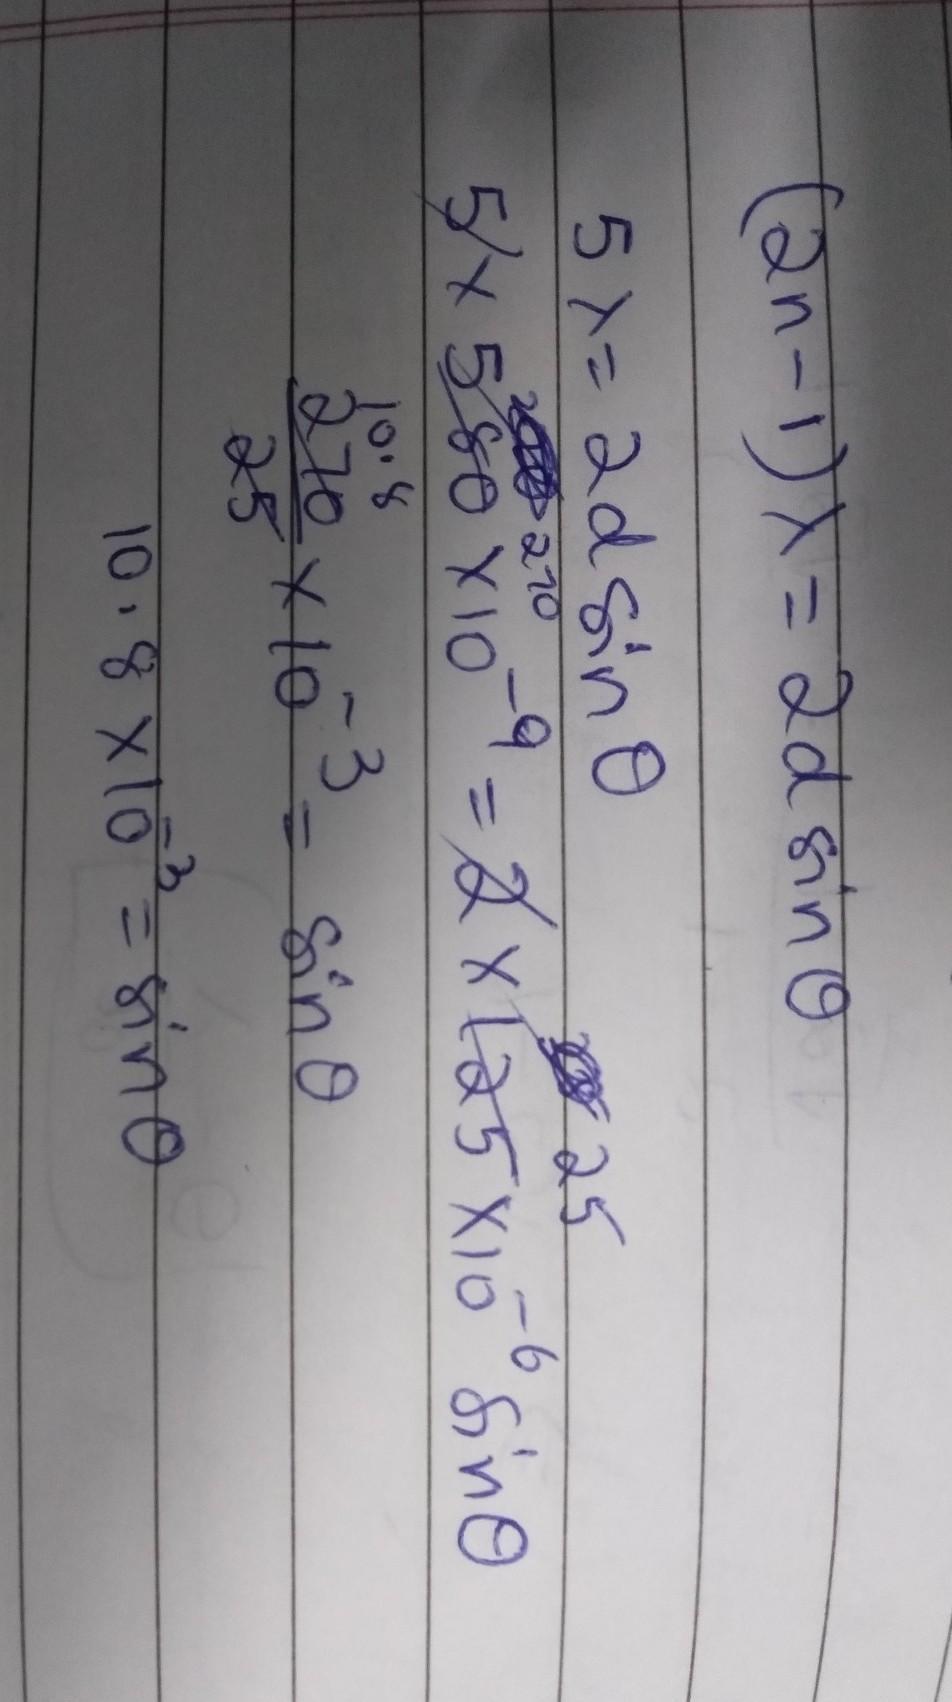 (2n-1)λ = 2d sin θ
5λ = 2d sin θ
270 25
5 × 580 × 10⁻⁹ = 2 × 125 × 10⁻⁶ sin θ
10.8
270/25 × 10⁻³ = sin θ
10.8 × 10⁻³ = sin θ